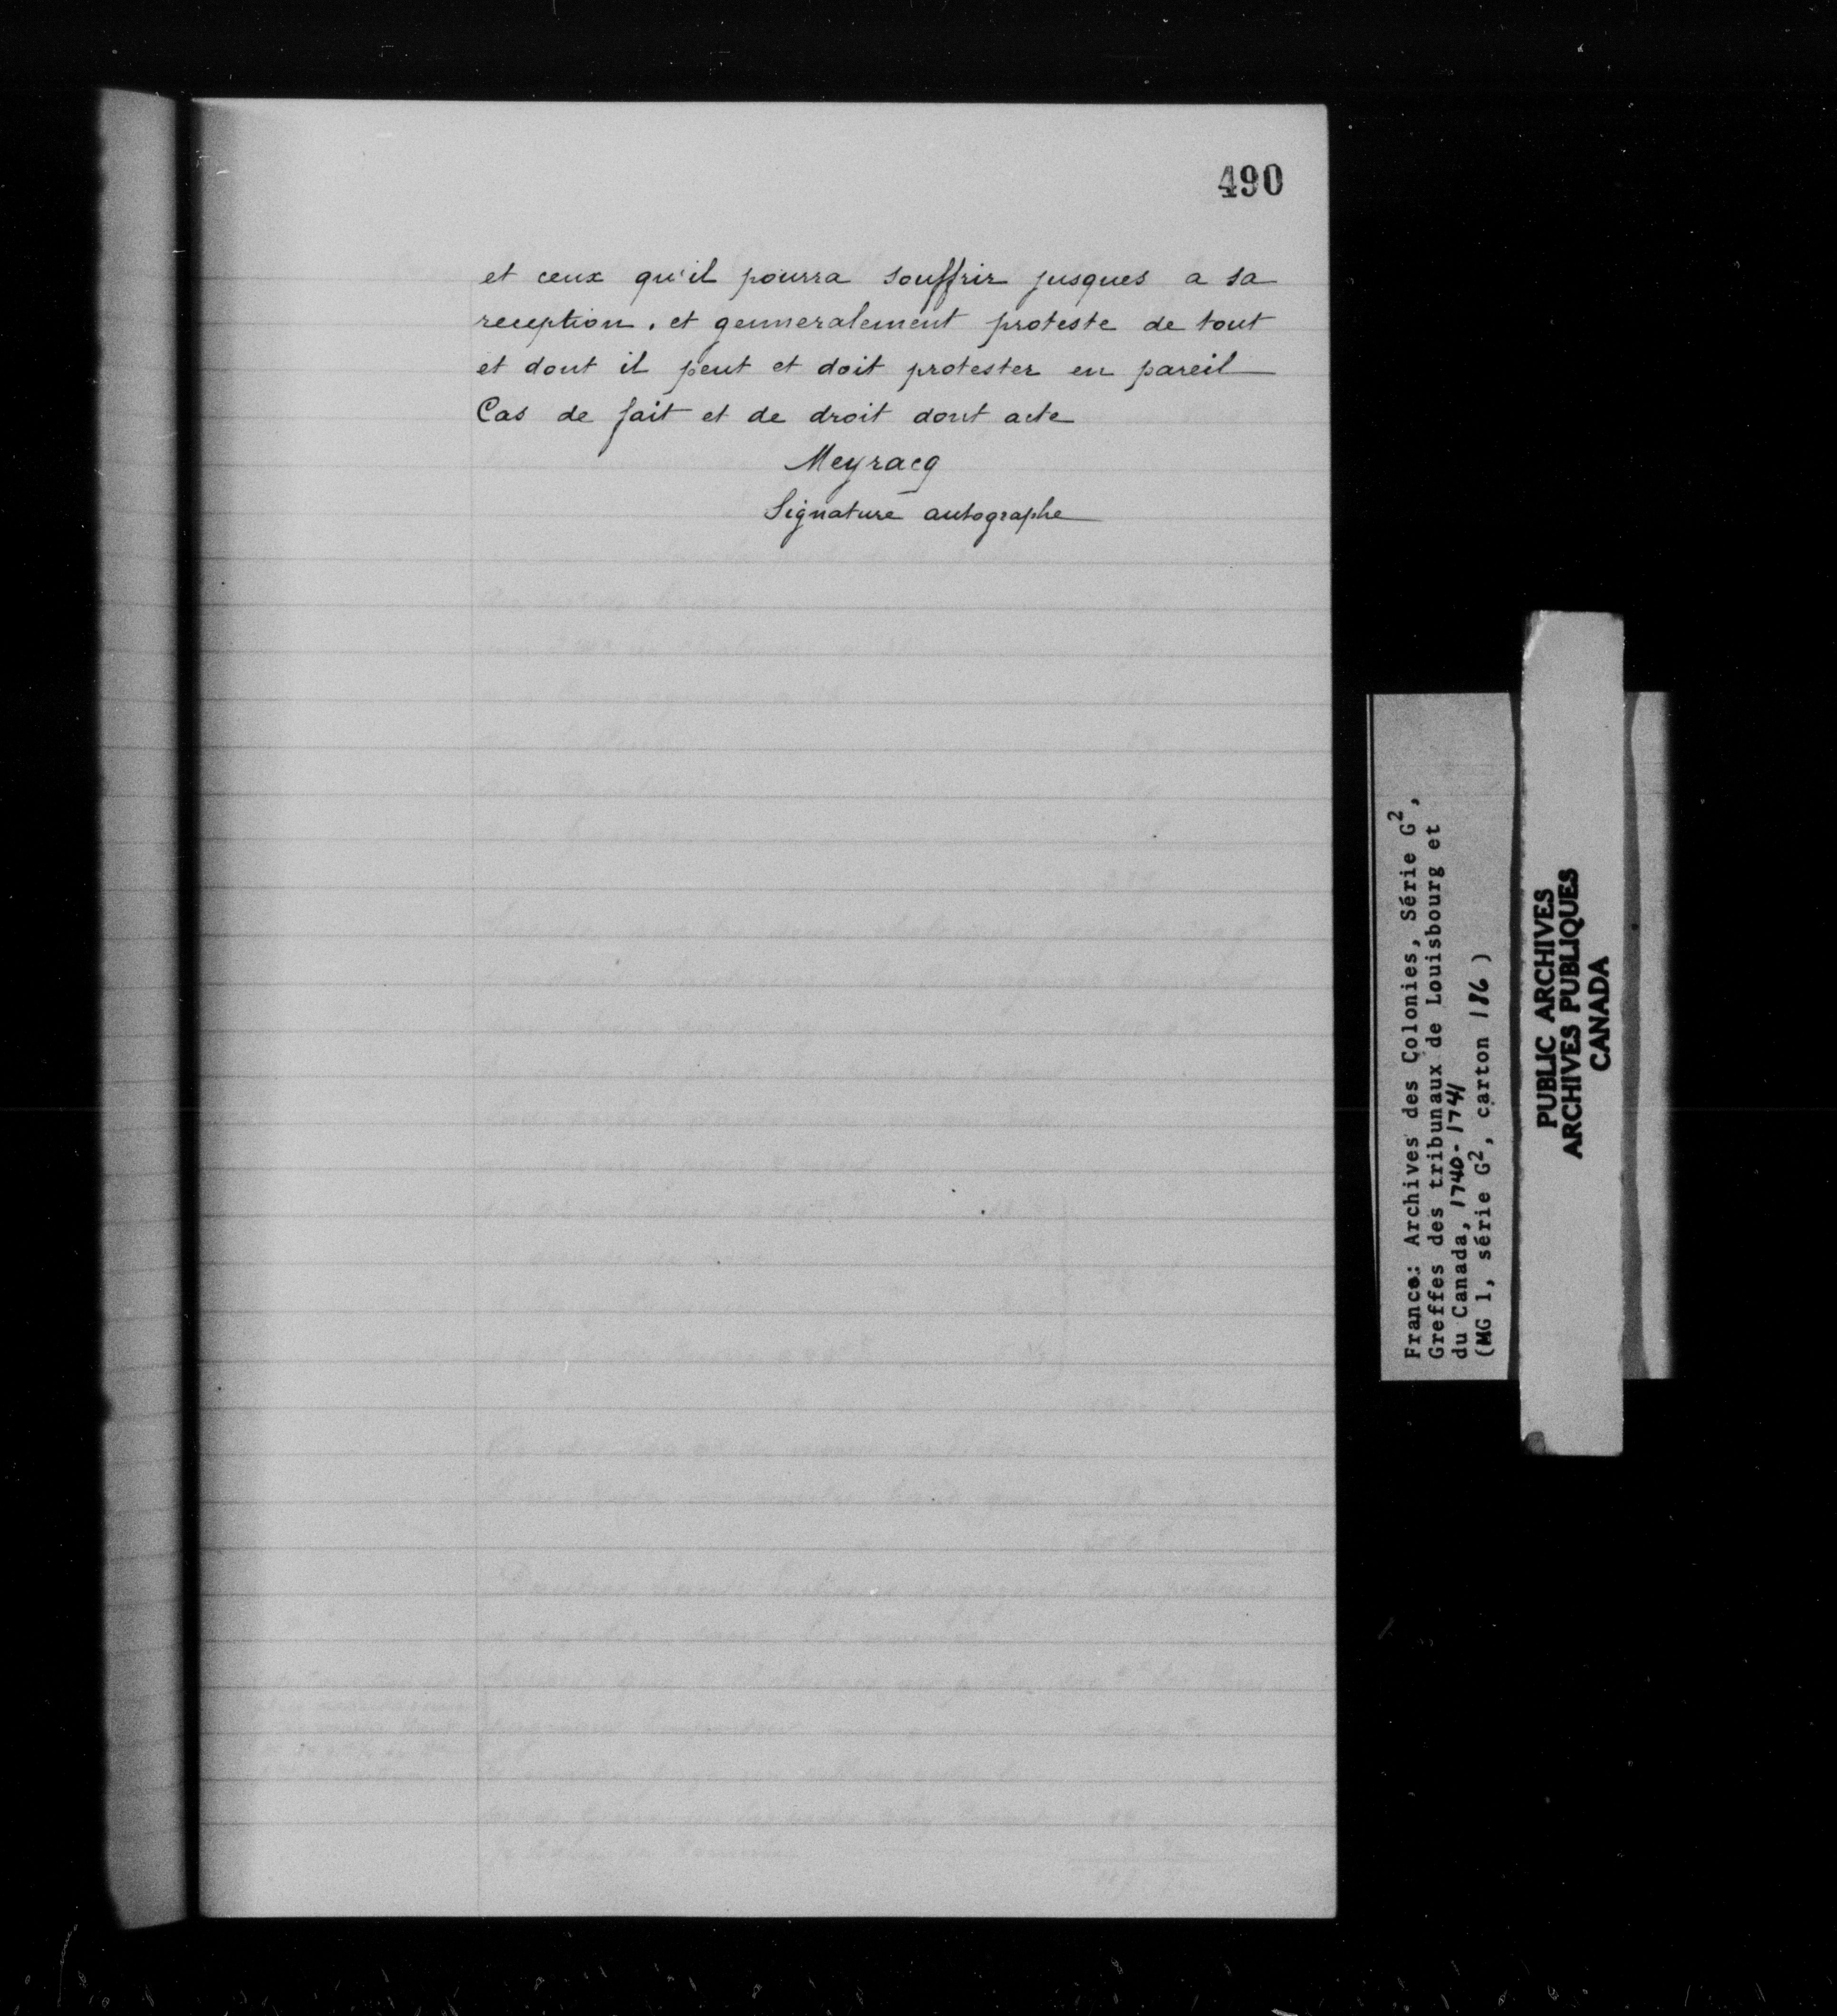 490
et ceux qu'il pourra souffrir jusques a sa
reception. et genneralement proteste de tout
et dont il peut et doit protester en pareil
Cas de fait et de droit dont acte
Meyracq
Signature autographe
France: Archives des Colonies, Série G²,
Greffes des tribunaux de Louisbourg et
du Canada, 1740-1741
(MG 1, série G², carton 186)
PUBLIC ARCHIVES
ARCHIVES PUBLIQUES
CANADA